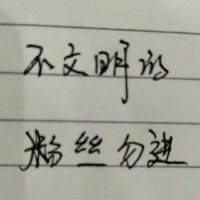 不文明的
粉丝勿进